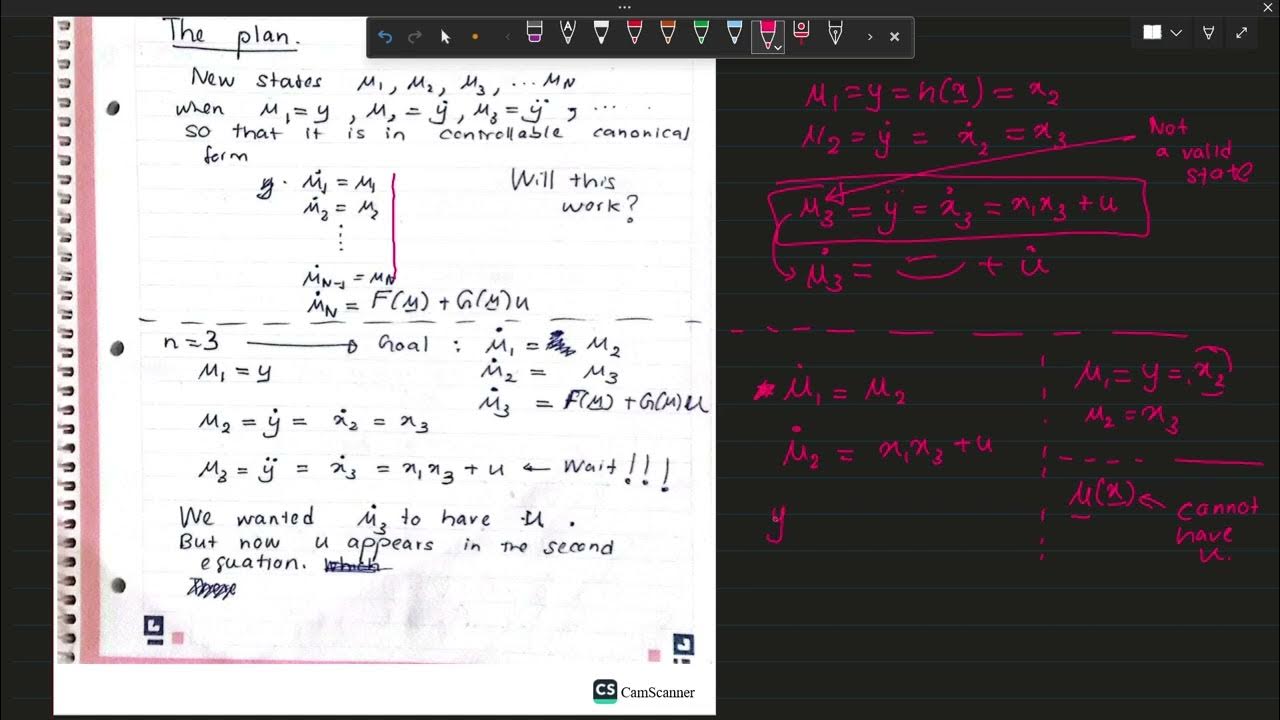 The plan.
New states μ₁, μ₂, μ₃, ... μN
when μ₁ = y, μ₂ = ẏ, μ₃ = ÿ, .....
so that it is in controllable canonical
form
y. μ̇₁ = μ₁
μ̇₂ = μ₂
Will this
work?
μ̇N-1 = μN
μ̇N = F(μ) + G(μ)u
n = 3 → Goal : μ̇₁ = μ₂
μ₁ = y
μ̇₂ = μ₃
μ̇₃ = F(μ) + G(μ)u
μ₂ = ẏ = ẋ₂ = x₃
μ₃ = ÿ = ẋ₃ = x₁x₃ + u ← Wait!!!
We wanted μ̇₃ to have u.
But now u appears in the second
equation.
CS CamScanner
μ₁ = y = h(x) = x₂
μ₂ = ẏ = ẋ₂ = x₃
Not
a valid
state
μ₃ = ÿ = ẋ₃ = x₁x₃ + u
μ̇₃ = + u̇
μ̇₁ = μ₂
μ̇₂ = x₁x₃ + u
y
μ₁ = y = x₂
μ₂ = x₃
μ(x) ← cannot
have
u.